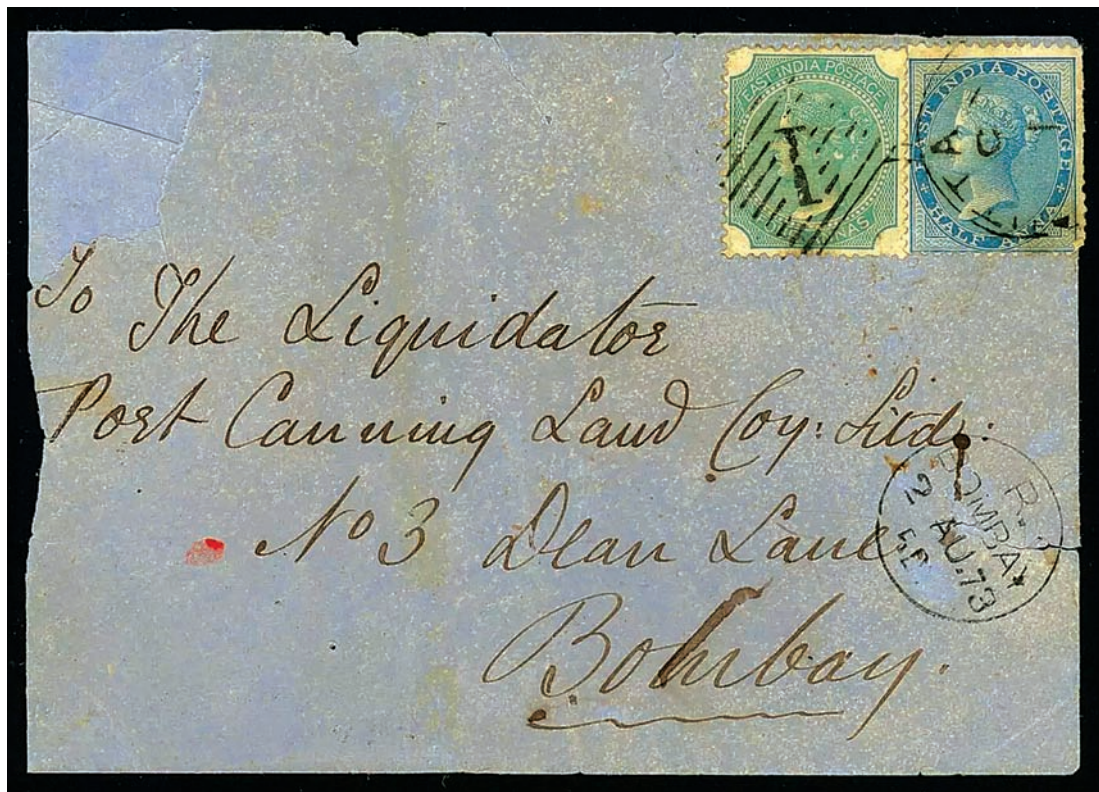 EAST INDIA POSTAGE
EAST INDIA POSTAGE
HALF ANNA
1
To The Liquidator
Port Canning Land Coy: Litd:
No 3 Dean Lane
Bombay.
R.
BOMBAY
2 AU.73